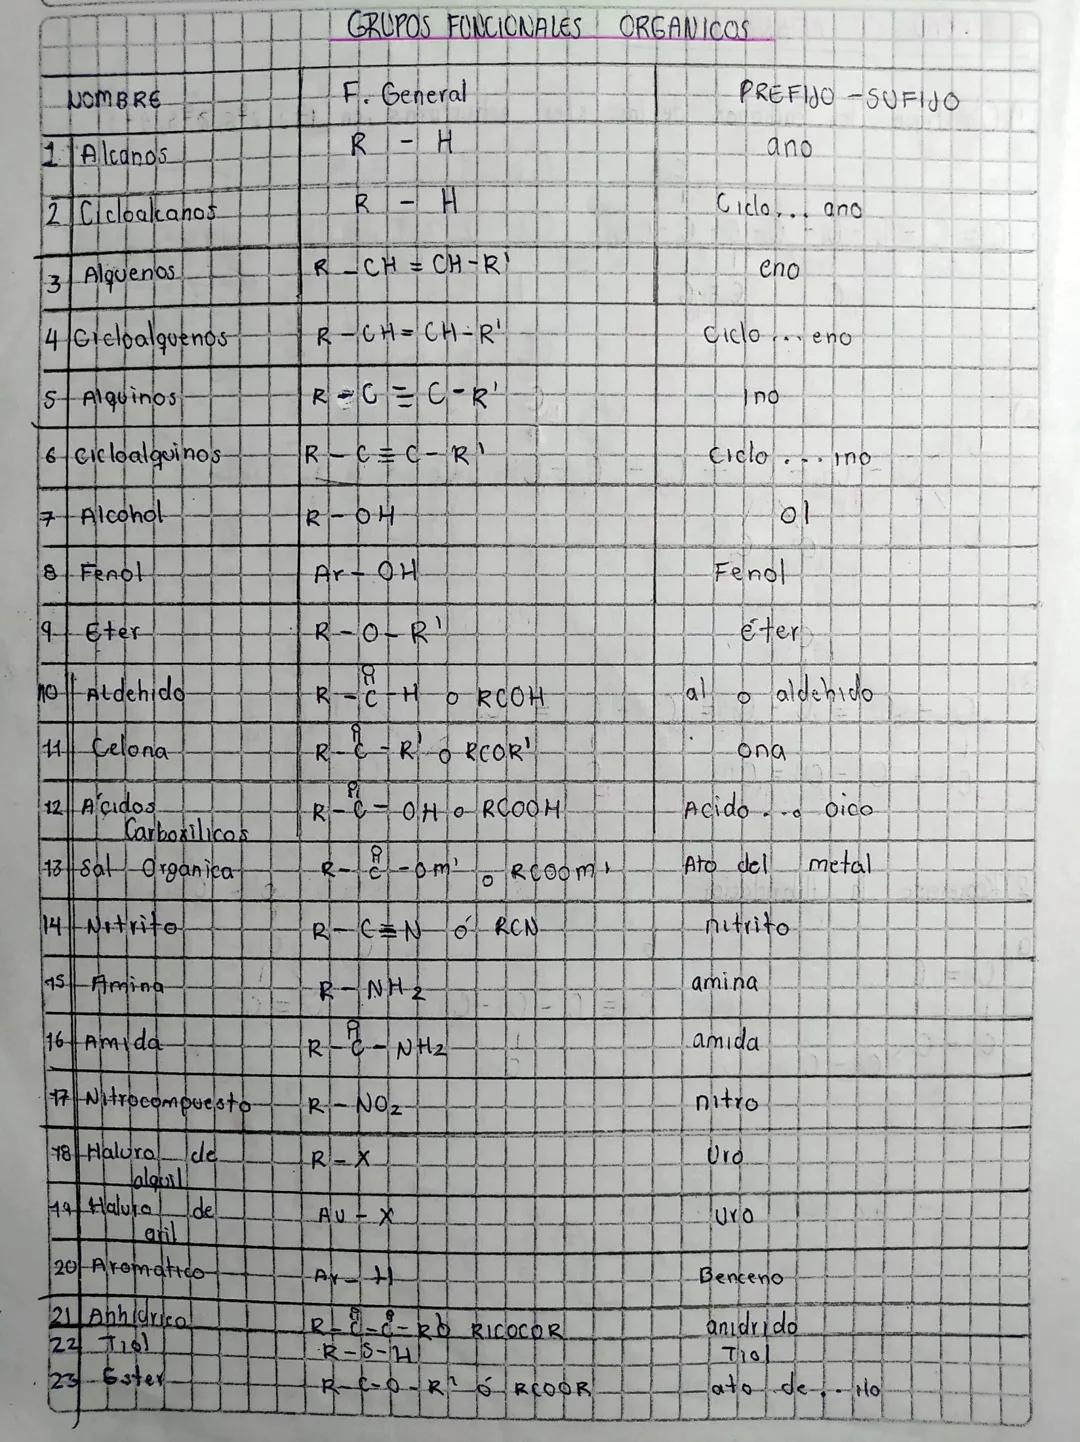 GRUPOS FUNCIONALES ORGANICOS
NOMBRE F. General PREFIJO - SUFIJO
1 Alcanos R - H ano
2 Cicloalcanos R - H Ciclo... ano
3 Alquenos R - CH = CH - R' eno
4 Cicloalquenos R - CH = CH - R' Ciclo ... eno
5 Alquinos R - C ≡ C - R' ino
6 Cicloalquinos R - C ≡ C - R' Ciclo ... ino
7 Alcohol R - OH ol
8 Fenol Ar - OH Fenol
9 Eter R - O - R' éter
O
10 Aldehido R - C - H o RCOH al o aldehido
O
11 Celona R - C - R' ó RCOR' ona
O
12 Ácidos R - C - OH o RCOOH Acido ... oico
Carboxilicos
O
13 Sal Organica R - C - Om' o RCOOm' Ato del metal
14 Nitrito R - C ≡ N ó RCN nitrito
15 Amina R - NH2 amina
O
16 Amida R - C - NH2 amida
17 Nitrocompuesto R - NO2 nitro
18 Haluro de R - X Uro
alquil
19 Haluro de AU - X uro
aril
20 Aromatico Ar - H Benceno
O O
21 Anhidrico R - C - C - R ó RICOCOR anidrido
22 Tiol R - S - H Tiol
23 Ester R - C - O - R' ó RCOOR ato de ... ilo